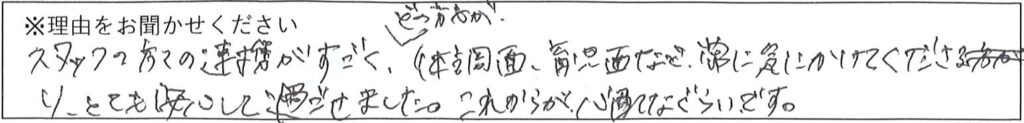 ※理由をお聞かせください
どの方が、
スタッフの方々の連携がすごく、体調面、育児面など、常に気にかけてくださ
り、とても安心して過ごせました。これからが心配なぐらいです。